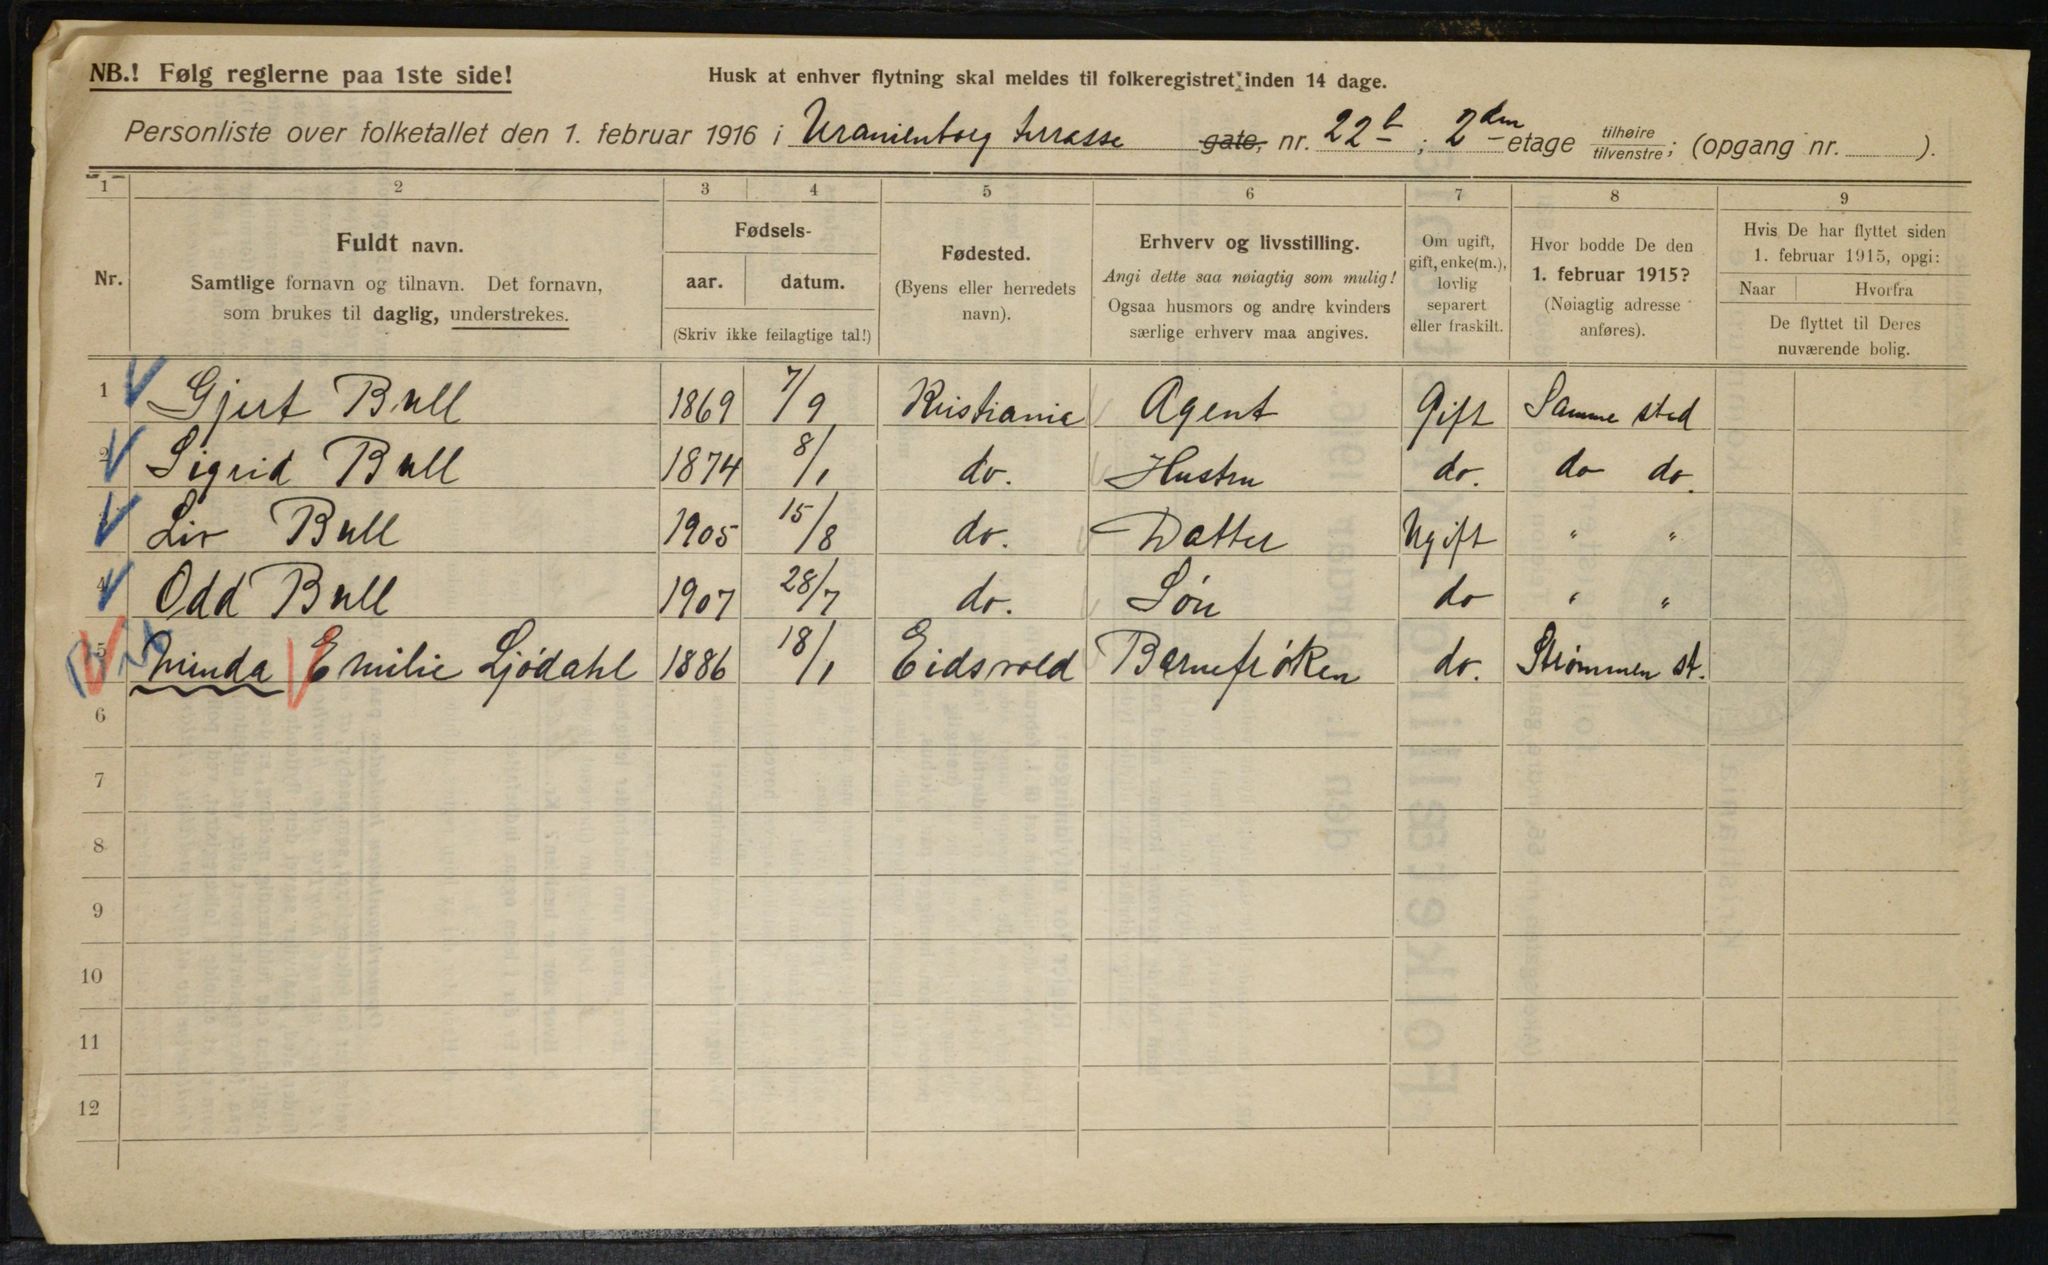 NB.! Følg reglerne paa 1ste side!
Husk at enhver flytning skal meldes til folkeregistret inden 14 dage.
Personliste over folketallet den 1. februar 1916 i Uranienborg terrasse gate, nr. 22b; 2den etage tilhøire tilvenstre; (opgang nr. ).
1 2 3 4 5 6 7 8 9
Nr.
Fuldt navn.
Samtlige fornavn og tilnavn. Det fornavn,
som brukes til daglig, understrekes.
Fødsels-
aar. datum.
(Skriv ikke feilagtige tal!)
Fødested.
(Byens eller herredets
navn).
Erhverv og livsstilling.
Angi dette saa nøiagtig som mulig!
Ogsaa husmors og andre kvinders
særlige erhverv maa angives.
Om ugift,
gift, enke(m.),
lovlig
separert
eller fraskilt.
Hvor bodde De den
1. februar 1915?
(Nøiagtig adresse
anføres).
Hvis De har flyttet siden
1. februar 1915, opgi:
Naar Hvorfra
De flyttet til Deres
nuværende bolig.
1 Gjert Bull 1869 7/9 Kristiania Agent Gift Samme sted
2 Sigrid Bull 1874 8/1 do. Hustru do. do do.
3 Liv Bull 1905 15/8 do. Datter Ugift " "
4 Odd Bull 1907 28/7 do. Søn do " "
5 Minda Emilie Ljødahl 1886 18/1 Eidsvold Barnefrøken do. Strømmen st.
6
7
8
9
10
11
12